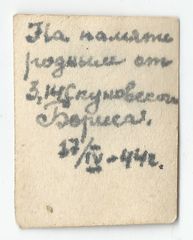 На память
родным от
Бориса.
17/IV-44г.